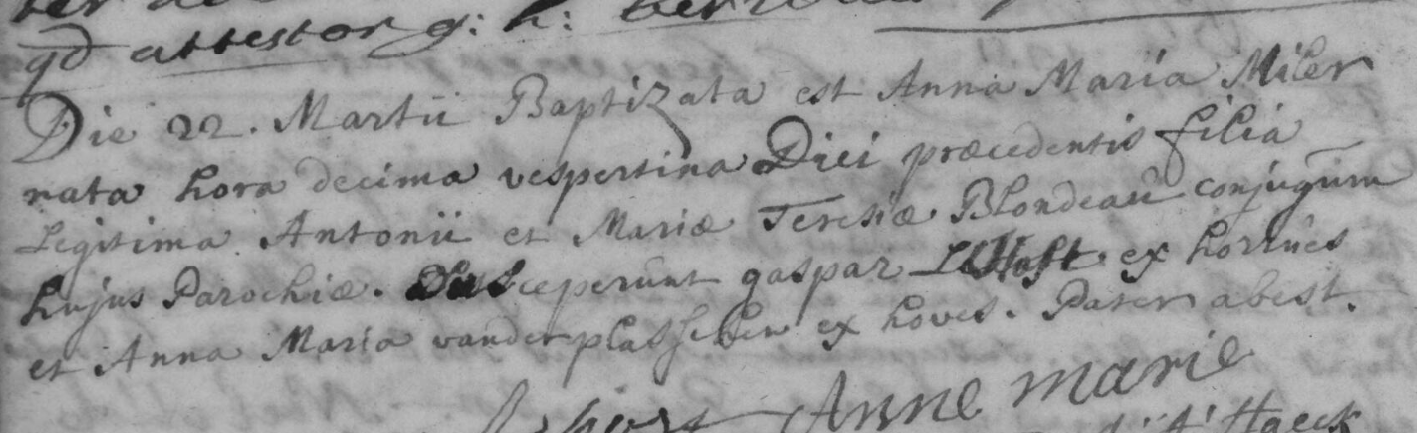 qd attestor g: h:
Die 22. Martii Baptizata est Anna Maria Miler
nata hora decima vespertina Diei præcedentis filia
Legitima Antonii et Mariæ Teresiæ Blondeau conjugum
hujus Parochiæ. Susceperunt gaspar ex horrues
et Anna Maria vanderplasschen ex hoves. Pater abest.
Anne marie